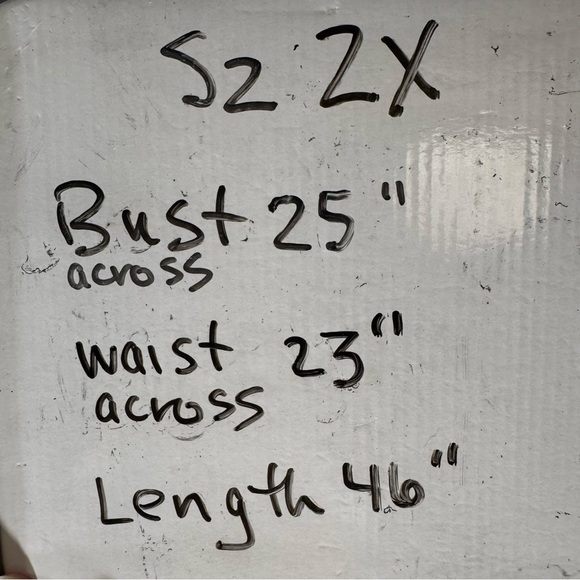 Sz 2X
Bust 25"
across
waist 23"
across
Length 46"